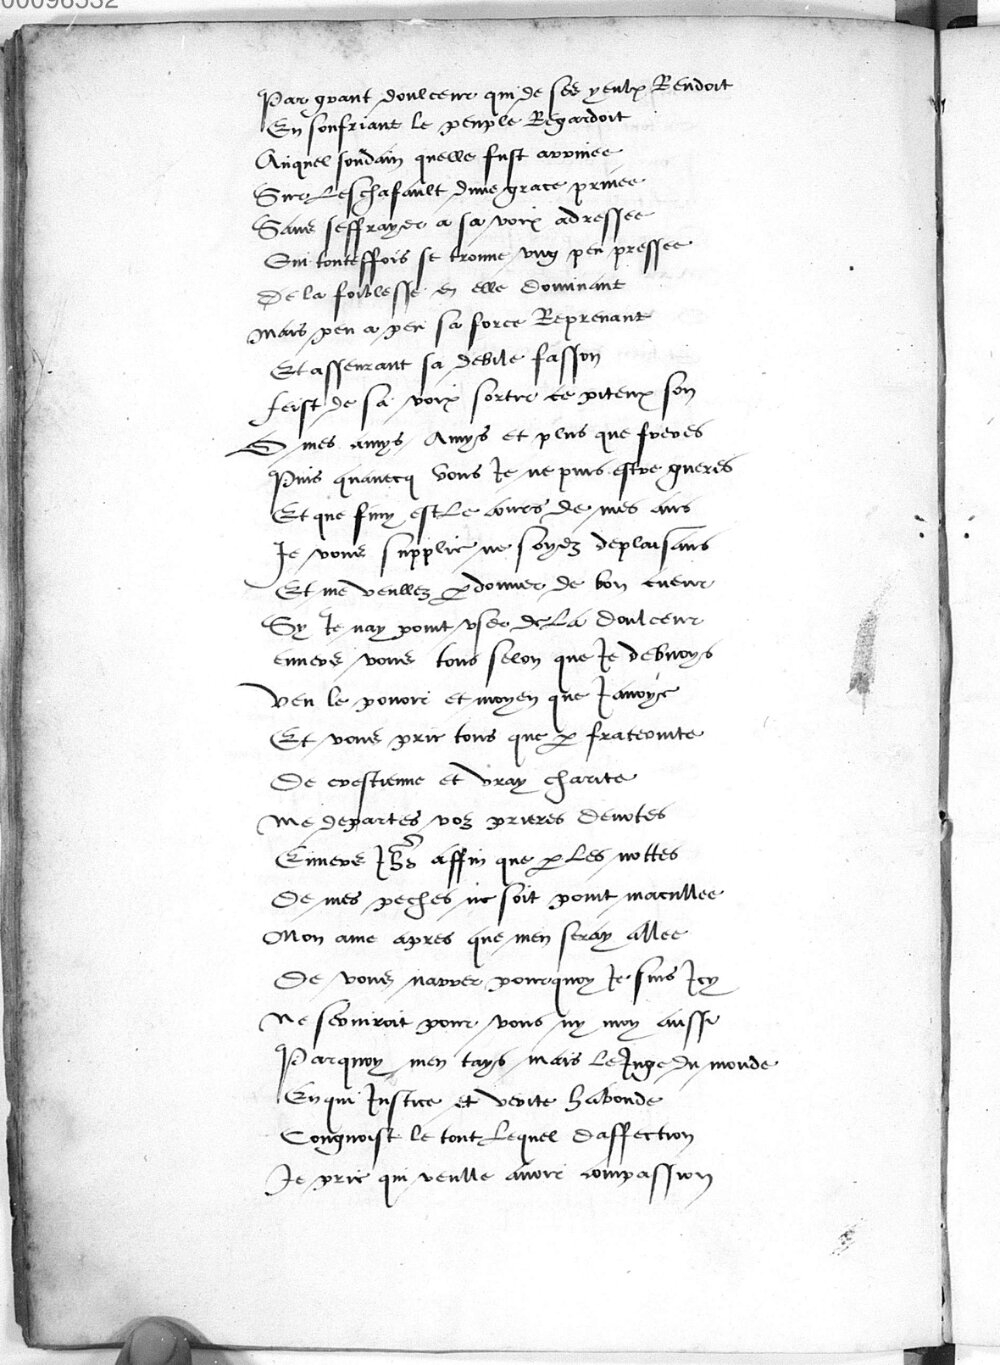 00096532
Par grant doulceur qui de ses yeulx Rendoit
En soufriant le peuple Regardoit
Auquel soudain quelle fust arrivee
Sur Leschafault dune grace privee
Sans seffrayer a sa voix adressee
Qui touteffois se trouve ung peu pressee
De la foiblesse en elle dominant
Mais peu a peu sa force Reprenant
Et asseurant sa debile fasson
feist de sa voix sortir ce piteux son
O mes amys Amys et plus que freres
Puis quavecq vous Je ne puis estre gueres
Et que finy est Le cours de mes ans
Je vous supplie ne soyez deplaisans
Et me veullez pdonner de bon cueur
Sy Je nay point user de La doulceur
envers vous tous selon que Je debvoys
Veu le povoir et moyen que Javoys
Et vous prie tous que p fraternite
De crestienne et vray charite
Me departes voz prieres devotes
Envers Jhs affin que p Les nottes
De mes peches ne soit point macullee
Mon ame apres que men seray allee
De vous narrer pourquoy Je suis Jcy
Ne serviroit pour vous ny moy aussi
Parquoy men tays mais Le Juge du monde
En qui Justice et verite habonde
Congnoist le tout Lequel daffection
Je prie qui veulle avoir compassion